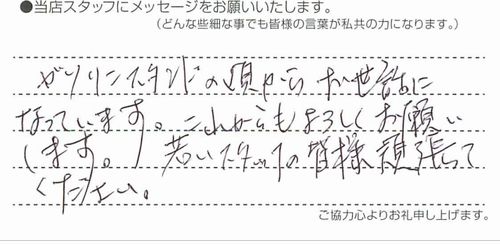 ●当店スタッフにメッセージをお願いいたします。
（どんな些細な事でも皆様の言葉が私共の力になります。）
ガソリンスタンドの頃からお世話に
なっています。これからもよろしくお願い
します。若いスタッフの皆様頑張って
ください。
ご協力心よりお礼申し上げます。